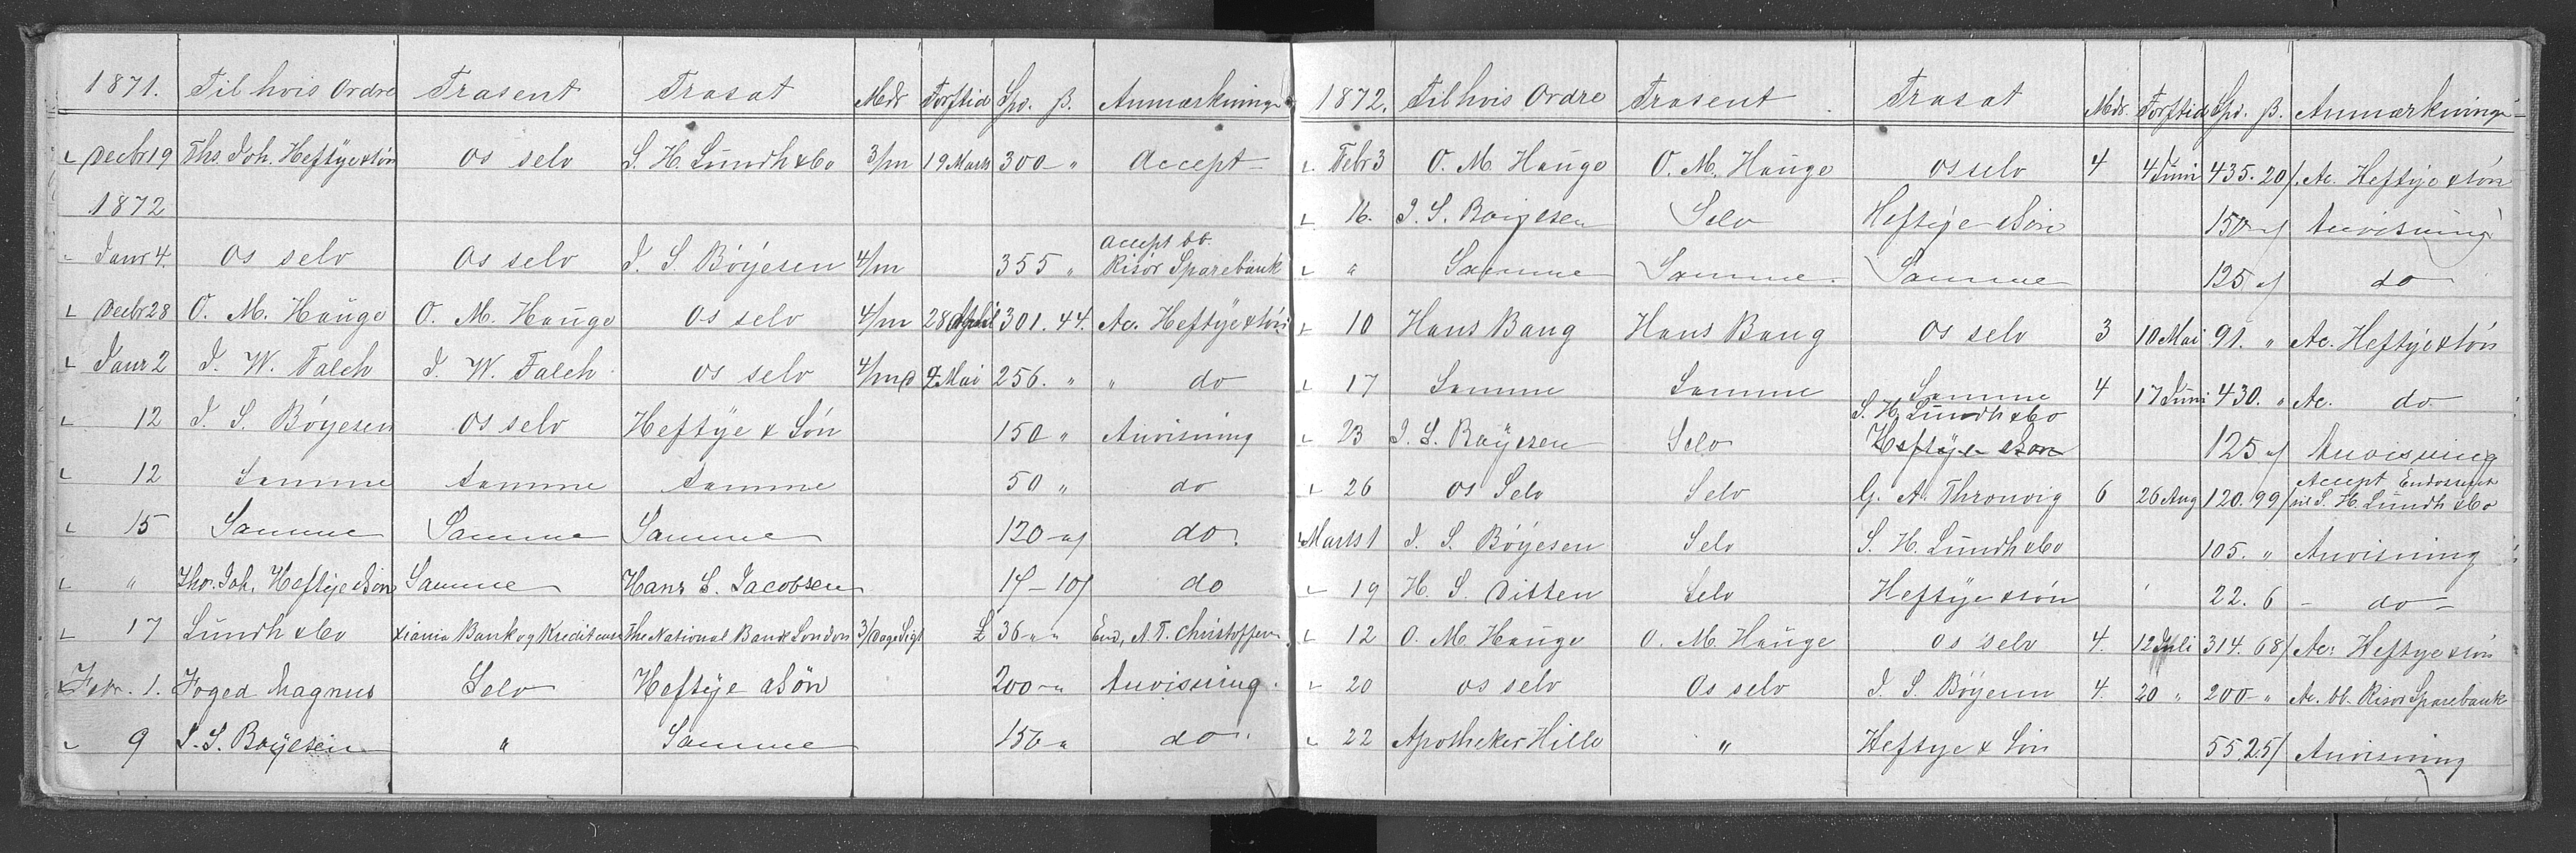 1871. Til hvis Ordre Trasent Trasat Mdr Forftid Spd. ß. Anmærkninge
Decbr 19 Ths. Joh. Heftye & Søn Os selv S. H. Lundh & Co 3/m 19 Marts 300 " Accept
1872
Janr 4. Os selv Os selv J. S. Böyesen 4/m 355 " Accept bb. Risör Sparebank
Decbr 28 O. M. Hauge O. M. Hauge Os selv 4/m 28 April 301. 44. Ac. Heftye & Søn
Janr 2 J. W. Falch J. W. Falch Os selv 4/m 2 Mai 256. " " do
12 J. S. Böyesen Os selv Heftye & Søn 150 " Anvisning
12 Samme Samme Samme 50 " do
15 Samme Samme Samme 120 " do.
" Tho. Joh. Heftye & Søn Samme Hans S. Jacobsen 14 - 10/ do
17 Lundh & Co Xiania Bank og Kreditcasse The National Bank London 3/Dage Sigt £ 36 " " End, A. T. Christoffersen
Febr. 1. Foged Magnus Selv Heftye & Søn 200 " Anvisning.
9 J. S. Böyesen " Samme 150 " do.
1872. Til hvis Ordre Trasent Trasat Mdr. Forftid Spd. ß. Anmærkninge
Febr 3 O. M. Hauge O. M. Hauge Os selv 4 4 Juni 435. 20/. Ac. Heftye & Søn
16. J. S. Böyesen Selv Heftye & Søn 150 " Anvisning
" Samme Samme Samme 125 " do
10 Hans Bang Hans Bang Os selv 3 10 Mai 91. " Ac. Heftye & Søn
17 Samme Samme Samme 4 17 Juni 430. " Ac. do
S. H. Lundh & Co
23 J. S. Böyesen Selv Heftye & Søn 125 " Anvisning
Accept Endosseret
26 Os Selv Selv G. A. Thronvig 6 26 Aug 120. 99/ til S. H. Lundh & Co
Marts 1 J. S. Böyesen Selv S. H. Lundh & Co 105. " Anvisning
19 H. S. Ditten Selv Heftye & Søn 22. 6 - do -
12 O. M. Hauge O. M. Hauge Os selv 4. 12 Juli 314. 68/ Ac. Heftye & Søn
20 Os selv Os selv J. S. Böyesen 4. 20 " 200 " Ac. bb. Risør Sparebank
22 Apotheker Hille " Heftye & Søn 55. 25/ Anvisning